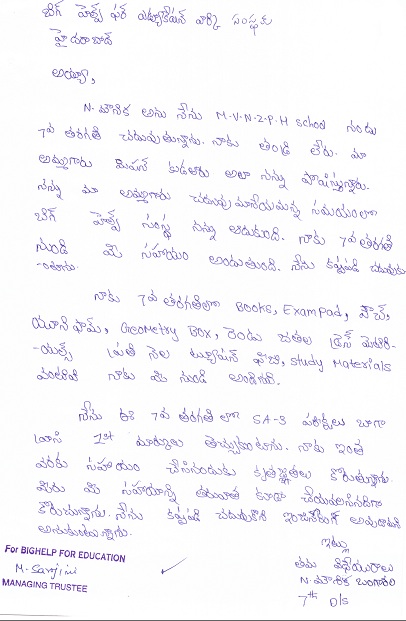 బిగ్ హెల్ప్ ఫర్ ఎడ్యూకేషన్ వారి సంస్థకు
హైదరాబాద్
అయ్యా,
N. మౌనిక అను నేను M-V-N-2-P-H school నందు
7వ తరగతి చదువుతున్నాను. నాకు తండ్రి లేరు. మా
అమ్మగారు మిషన్ కుడతారు అలా నన్ను పోషిస్తున్నారు.
నన్ను మా అమ్మగారు చదువు మానేయమన్న సమయంలో
బిగ్ హెల్ప్ సంస్థ నన్ను ఆదుకుంది. నాకు 7వ తరగతి
నుండి మీ సహాయం అందుతుంది. నేను కష్టపడి చదువుకు
-ంటాను.
నాకు 7వ తరగతిలో Books, ExamPad, పౌచ్,
యూనిఫామ్, Geometry Box, రెండు జతల డ్రెస్ మెటీరి-
-యల్స్ ప్రతి నెల ట్యూషన్ ఫీజు, Study Materials
వంటివి నాకు మీ నుండి అందినవి.
నేను ఈ 7వ తరగతి లో SA-3 పరీక్షలు బాగా
వ్రాసి 1st మార్కులు తెచ్చుకుంటాను. నాకు ఇంత
వరకు సహాయం చేసినందుకు కృతజ్ఞతలు
మీరు మీ సహాయాన్ని తరువాత కూడా చేయవలసినదిగా
కోరుచున్నాను. నేను కష్టపడి చదువుకొని ఇంజనీరింగ్ అవ్వాలని
అనుకుంటున్నాను.
ఇట్లు
తమ విధేయురాలు
N. మౌనిక బంగారం
7th D/s
For BIGHELP FOR EDUCATION
M. Sarojini
MANAGING TRUSTEE